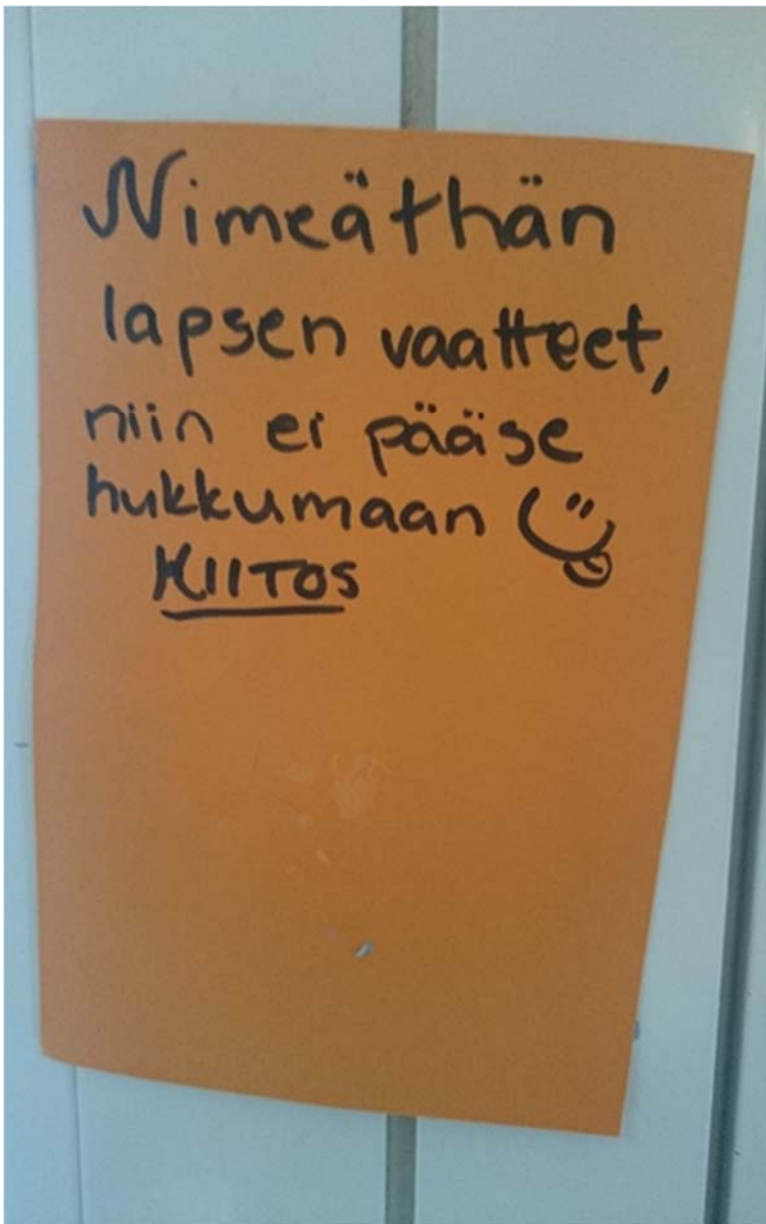 Nimeäthän
lapsen vaatteet,
niin ei pääse
hukkumaan
KIITOS